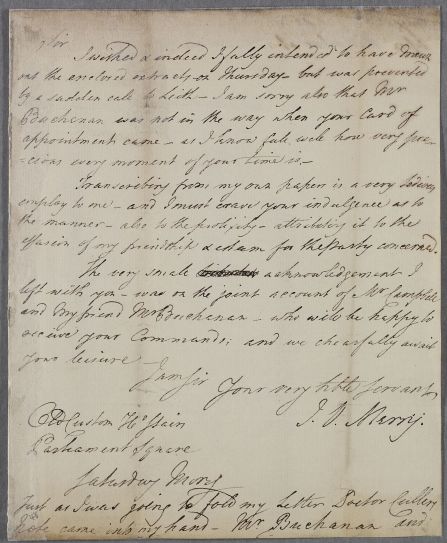 Sir
I wished & indeed I fully intended to have drawn
out the enclosed extracts on Thursday - but was prevented
by a sudden call to Leith - I am sorry also that Mr
Buchanan was not in the way when your Card of
appointment came - as I know full well how very pre=
=cious every moment of your time is -
Transcribing from my own papers is a very
employ to me - and I must crave your indulgence as to
the manner - also to the prolixity - attributing it to the
effusion of my friendship & esteem for the Party concerned.
The very small acknowledgement I
left with you - was on the joint account of Mr Campbell
and my friend Mr Buchanan - who will be happy to
receive your Commands; and we chearfully await
your leisure -
I am Sir
Your very hble Servant
Old Custom Ho Stair
Parliament Square
Saturday Morng
Just as I was going to fold my Letter Doctor Cullens
came into my hand - Mr Buchanan and